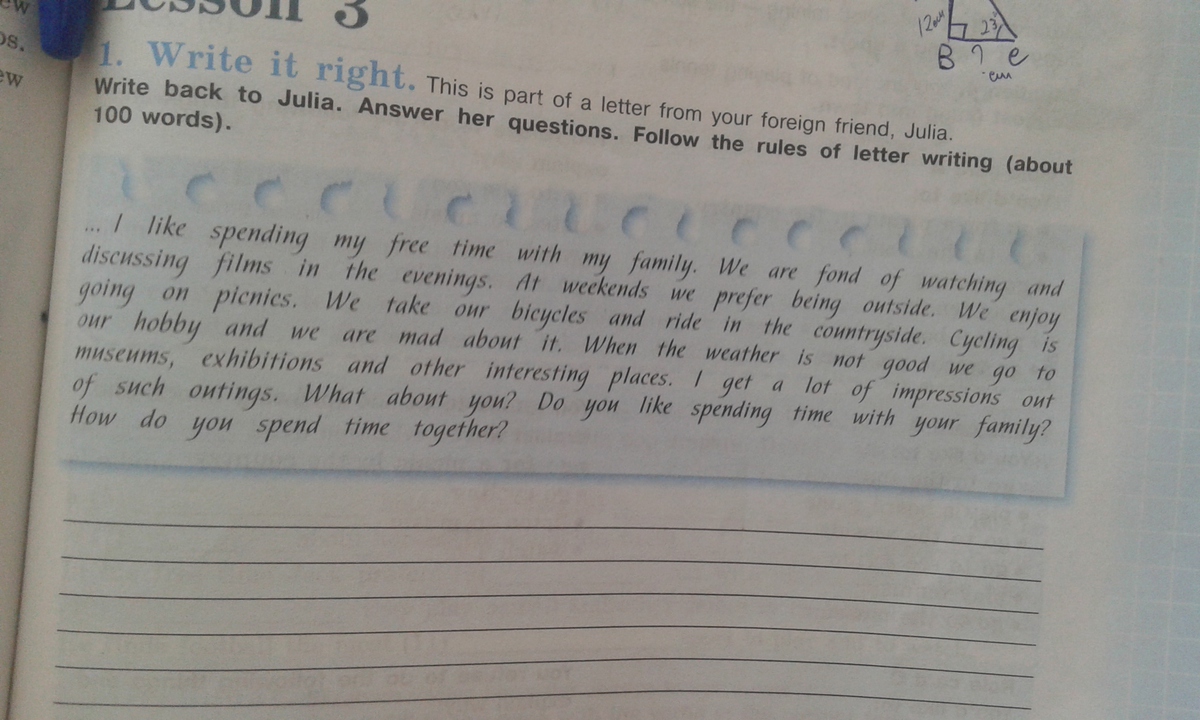 ew
os.
ew
Lesson 3
12см
23
B ? e
см
1. Write it right. This is part of a letter from your foreign friend, Julia.
Write back to Julia. Answer her questions. Follow the rules of letter writing (about
100 words).
... I like spending my free time with my family. We are fond of watching and
discussing films in the evenings. At weekends we prefer being outside. We enjoy
going on picnics. We take our bicycles and ride in the countryside. Cycling is
our hobby and we are mad about it. When the weather is not good we go to
museums, exhibitions and other interesting places. I get a lot of impressions out
of such outings. What about you? Do you like spending time with your family?
How do you spend time together?